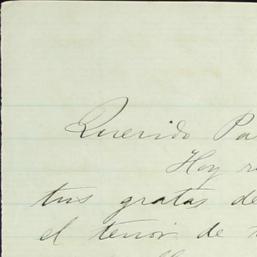 Querido Pa
Hoy r
tus gratas de
el tenor de